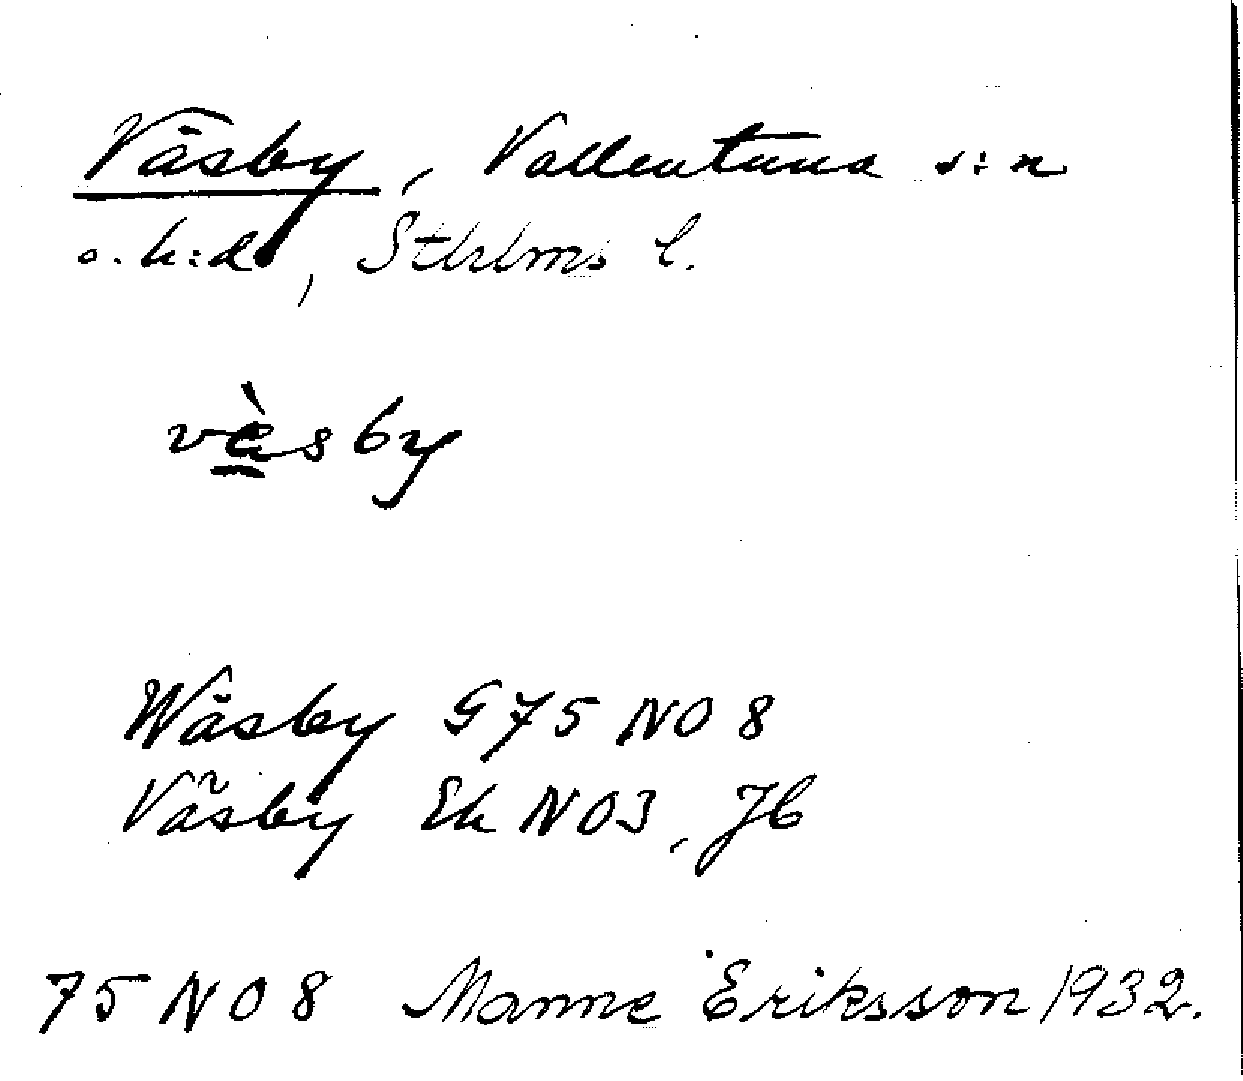 Väsby, Vallentuna s:n
o. h:d, Sthlms l.
vèsby
Wäsby G 75 NO 8
Väsby Ek NO3, Jb
75 NO 8 Manne Eriksson 1932.